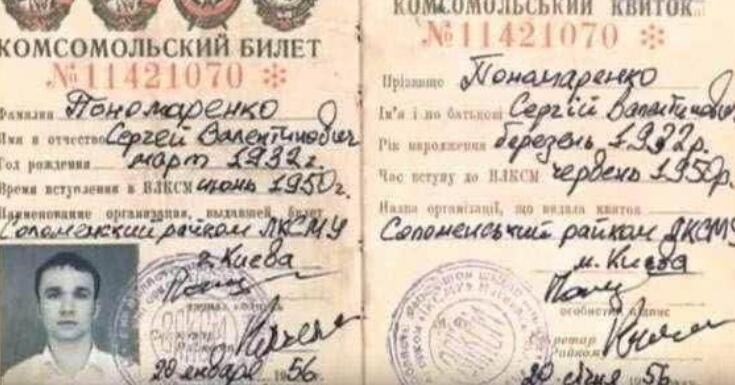 КОМСОМОЛЬСКИЙ БИЛЕТ
№11421070 *
Фамилия Пономаренко
Имя и отчество Сергей Валентинович
Год рождения март 1932 г.
Время вступления в ВЛКСМ июнь 1950г.
Наименование организации, выдавшей билет
Соломенский райком ЛКСМУ
г. Киева
20 января 1956
КОМСОМОЛЬСЬКИЙ КВИТОК
№11421070 *
Прізвище Пономаренко
Ім'я і по батькові Сергій Валентинович
Рік народження березень 1932р.
Час вступу до ВЛКСМ червень 1950р.
Назва організації, що видала квиток
Соломенський райком ЛКСМУ
м. Києва
особистий підпис
20 січня 1956